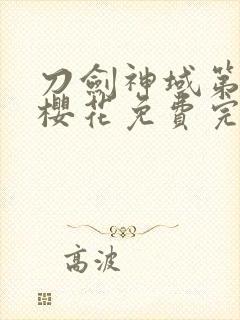 刀劍神域第
櫻花免費完
高波